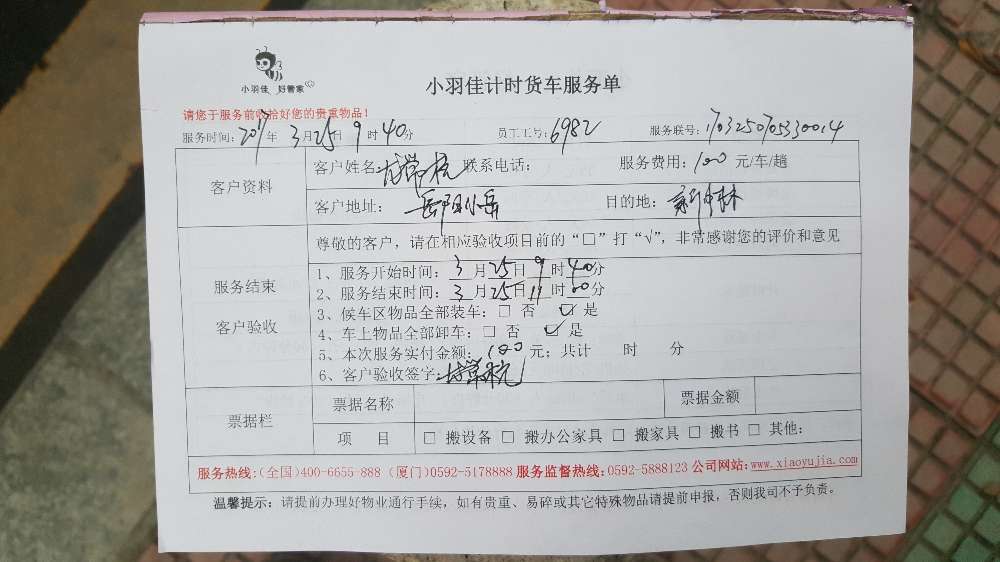 小羽佳 好管家
小羽佳计时货车服务单
请您于服务前收拾好您的贵重物品!
服务时间: 2017年 3月25日 9时40分 员工工号: 6982 服务联号: 1703250705330014
客户资料
客户姓名: 联系电话: 服务费用: 100 元/车/趟
客户地址: 岳阳小岳 目的地:
服务结束
客户验收
尊敬的客户,请在相应验收项目前的“□”打“√”,非常感谢您的评价和意见
1、服务开始时间: 3月25日9时40分
2、服务结束时间: 3月25日11时00分
3、候车区物品全部装车: □ 否 ☑ 是
4、车上物品全部卸车: □ 否 ☑ 是
5、本次服务实付金额: 100 元; 共计 时 分
6、客户验收签字:
票据栏
票据名称 票据金额
项 目 □ 搬设备 □ 搬办公家具 □ 搬家具 □ 搬书 □ 其他:
服务热线:(全国)400-6655-888 (厦门)0592-5178888 服务监督热线:0592-5888123 公司网站:www.xiaoyujia.com
温馨提示: 请提前办理好物业通行手续,如有贵重、易碎或其它特殊物品请提前申报,否则我司不予负责。